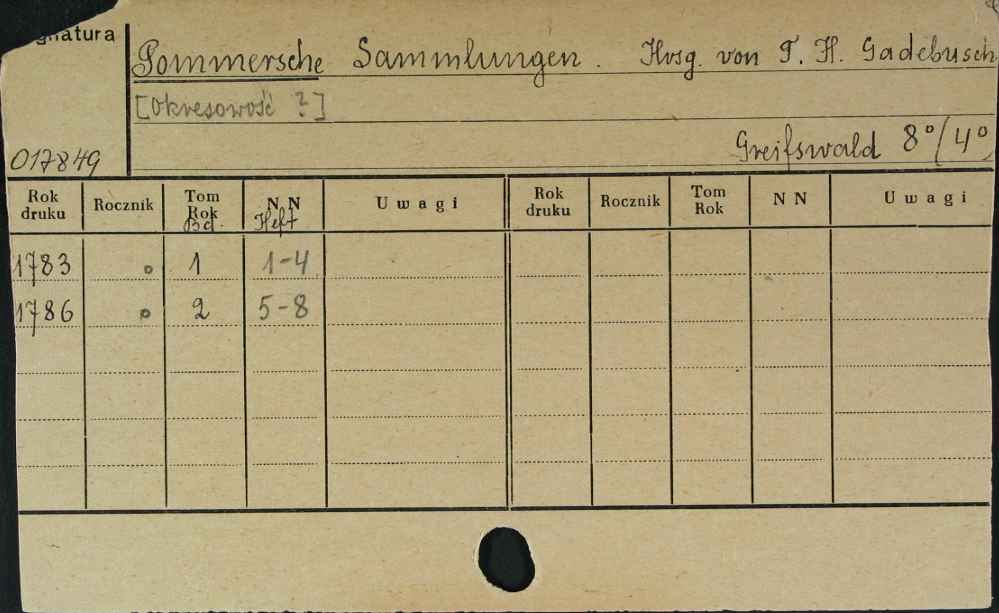 gnatura
Pommersche Sammlungen. Hrsg. von T. H. Gadebusch
[Okresowość ?]
Greifswald 8°/4°
017849
Rok druku Rocznik Tom Rok Bd. NN Heft Uwagi Rok druku Rocznik Tom Rok NN Uwagi
1783 o 1 1-4
1786 o 2 5-8